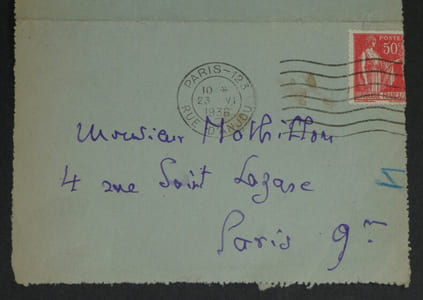 POSTES
50c
PARIS-123
10 H
23 VI
1936
RUE D'ANJOU
Monsieur Mothillon
4 rue Saint Lazare
Paris 9me